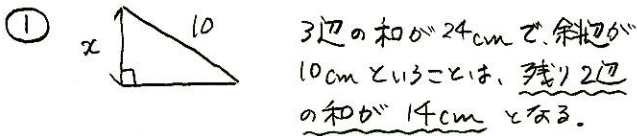 ①
x
10
3辺の和が24cmで、斜辺が
10cmということは、残り2辺
の和が14cmとなる.